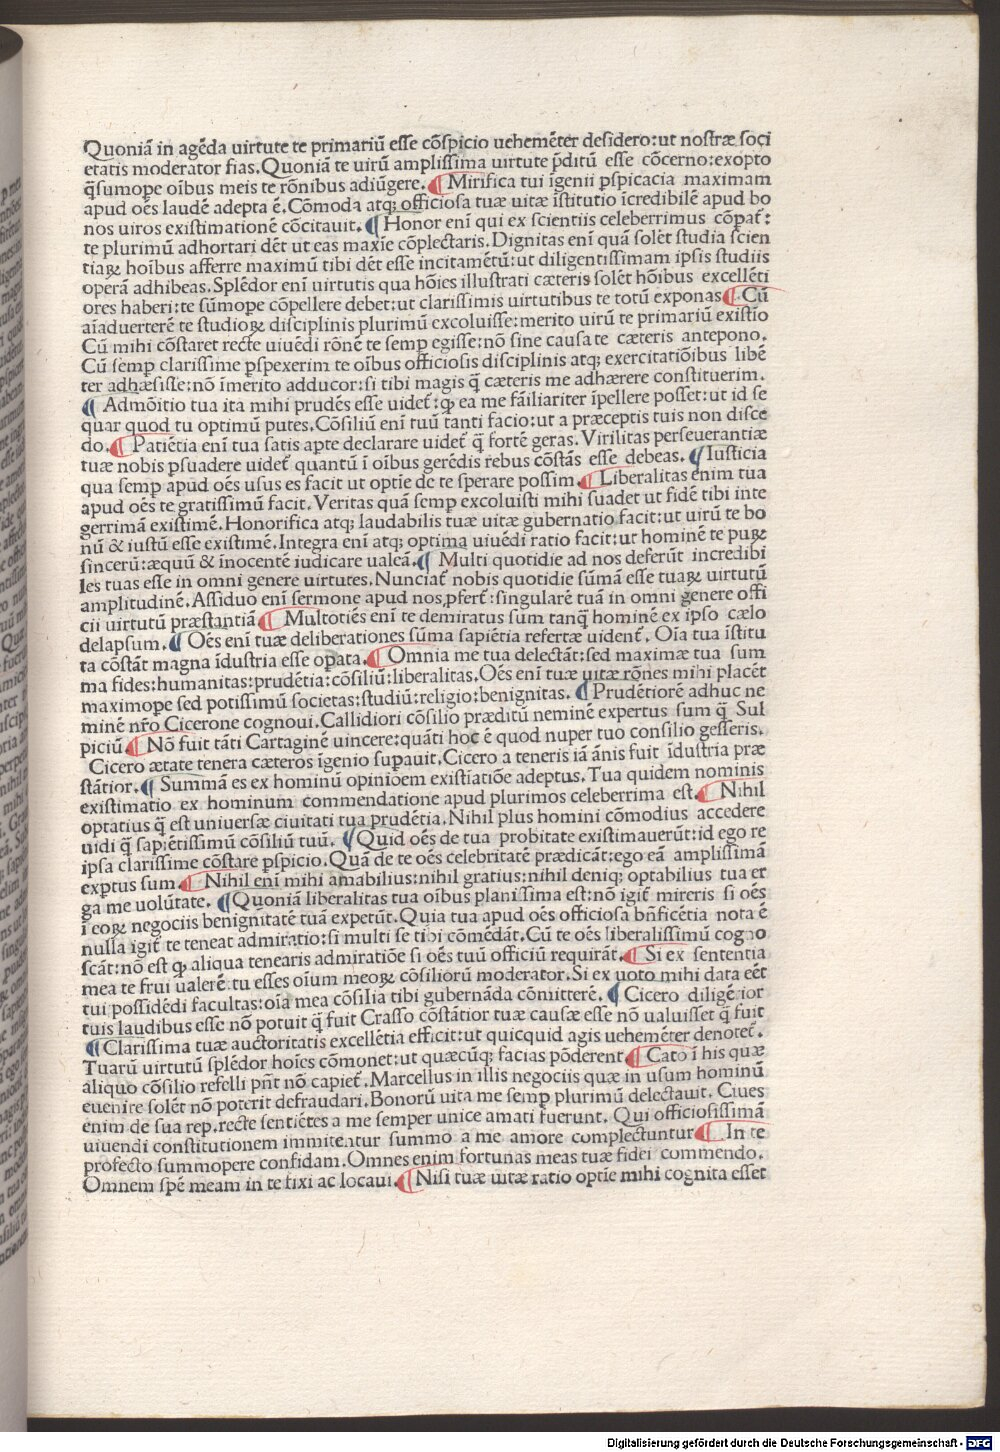 Quoniã in agẽda uirtute te primariũ esse cõspicio uehemẽter desidero:ut nostræ soci
etatis moderator fias.Quoniã te uirũ amplissima uirtute p̃ditũ esse cõcerno:exopto
q̃sumope oĩbus meis te rõnibus adiũgere.¶ Mirifica tui ĩgenii pspicacia maximam
apud oẽs laudẽ adepta ẽ.Cõmoda atq; officiosa tuæ uitæ ĩstitutio ĩcredibilẽ apud bo
nos uiros existimationẽ cõcitauit.¶ Honor enĩ qui ex scientiis celeberrimus cõpat̃:
te plurimũ adhortari dẽt ut eas maxĩe cõplectaris.Dignitas enĩ quã solẽt studia scien
tiaꝝ hoĩbus afferre maximũ tibi dẽt esse incitamẽtũ:ut diligentissimam ipsis studiis
operã adhibeas.Splẽdor enĩ uirtutis qua hõies illustrati cæteris solẽt hõibus excellẽti
ores haberi:te sũmope cõpellere debet:ut clarissimis uirtutibus te totũ exponas¶ Cũ
aĩaduerterẽ te studioꝝ disciplinis plurimũ excoluisse:merito uirũ te primariũ existĩo
Cũ mihi cõstaret recte uiuẽdi rõnẽ te semp egisse:nõ sine causa te cæteris antepono.
Cũ semp clarissime pspexerim te oĩbus officiosis disciplinis atq; exercitatiõibus libẽ
ter adhæsisse:nõ ĩmerito adducor:si tibi magis q̃ cæteris me adhærere constituerim.
¶ Admõitio tua ita mihi prudẽs esse uidet̃:ꝙ ea me fãiliariter ĩpellere posset:ut id se
quar quod tu optimũ putes.Cõsiliũ enĩ tuũ tanti facio:ut a præceptis tuis non disce
do.¶ Patiẽtia enĩ tua satis apte declarare uidet̃ q̃ fortẽ geras.Virilitas perseuerantiæ
tuæ nobis psuadere uidet̃ quantũ ĩ oĩbus gerẽdis rebus cõstãs esse debeas.¶Iusticia
qua semp apud oẽs usus es facit ut optĩe de te sperare possim.¶Liberalitas enim tua
apud oẽs te gratissimũ facit.Veritas quã semp excoluisti mihi suadet ut fidẽ tibi inte
gerrimã existimẽ.Honorifica atq; laudabilis tuæ uitæ gubernatio facit:ut uirũ te bo
nũ & iustũ esse existimẽ.Integra enĩ atq; optima uiuẽdi ratio facit:ut hominẽ te puꝝ
sincerũ:æquũ & ĩnocentẽ iudicare ualeã.¶ Multi quotidie ad nos deferũt incredibi
les tuas esse in omni genere uirtutes.Nunciat̃ nobis quotidie sũmã esse tuaꝝ uirtutũ
amplitudinẽ.Assiduo enĩ sermone apud nos pfert̃:singularẽ tuã in omni genere offi
cii uirtutũ præstantiã¶ Multotiẽs enĩ te demiratus sum tanq̃ hominẽ ex ipso cælo
delapsum.¶ Oẽs enĩ tuæ deliberationes sũma sapiẽtia refertæ uident̃. Oĩa tua ĩstitu
ta cõstãt magna ĩdustria esse opata.¶Omnia me tua delectãt:sed maximæ tua sum
ma fides:humanitas:prudẽtia:cõsiliũ:liberalitas.Oẽs enĩ tuæ uitæ rõnes mihi placẽt
maximope sed potissimũ societas:studiũ:religio:benignitas.¶Prudẽtiorẽ adhuc ne
minẽ nr̃o Cicerone cognoui.Callidiori cõsilio præditũ neminẽ expertus sum q̃ Sul
piciũ.¶ Nõ fuit tãti Cartaginẽ uincere:quãti hoc ẽ quod nuper tuo consilio gesseris.
Cicero ætate tenera cæteros ĩgenio supauit.Cicero a teneris iã ãnis fuit ĩdustria præ
stãtior.¶ Summã es ex hominũ opiniõem existiatiõe adeptus.Tua quidem nominis
existimatio ex hominum commendatione apud plurimos celeberrima est.¶ Nihil
optatius q̃ est uniuersæ ciuitati tua prudẽtia.Nihil plus homini cõmodius accedere
uidi q̃ sapiẽtissimũ cõsiliũ tuũ. ¶Quid oẽs de tua probitate existimauerũt:id ego re
ipsa clarissime cõstare pspicio.Quã de te oẽs celebritatẽ prædicãt:ego eã amplissimã
exptus sum.¶ Nihil enĩ mihi amabilius:nihil gratius:nihil deniq; optabilius tua er
ga me uolũtate. ¶Quoniã liberalitas tua oĩbus planissima est:nõ igit̃ mireris si oẽs
ĩ eoꝝ negociis benignitatẽ tuã expetũt.Quia tua apud oẽs officiosa bñficẽtia nota ẽ
nulla igit̃ te teneat admiratio:si multi se tibi cõmẽdãt.Cũ te oẽs liberalissimũ cogno
scãt:nõ est ꝙ aliqua tenearis admiratiõe si oẽs tuũ officiũ requirãt.¶ Si ex sententia
mea te frui ualerẽ:tu esses oĩum meoꝝ cõsiliorũ moderator.Si ex uoto mihi data eẽt
tui possidẽdi facultas:oĩa mea cõsilia tibi gubernãda cõmitterẽ.¶ Cicero diligẽtior
tuis laudibus esse nõ potuit q̃ fuit Crasso cõstãtior tuæ causæ esse nõ ualuisset q̃ fuit
¶Clarissima tuæ auctoritatis excellẽtia efficit:ut quicquid agis uehemẽter denotet̃.
Tuarũ uirtutũ splẽdor hoĩes cõmonet:ut quæcũq; facias põderent¶ Cato ĩ his quæ
aliquo cõsilio refelli pñt nõ capiet̃.Marcellus in illis negociis quæ in usum hominũ
euenire solẽt nõ poterit defraudari.Bonorũ uita me semp plurimũ delectauit. Ciues
enim de sua rep.recte sentiẽtes a me semper unice amati fuerunt. Qui officiosissimã
uiuendi constitutionem immitentur summo a me amore complectuntur¶ In te
profecto summopere confidam.Omnes enim fortunas meas tuæ fidei commendo.
Omnem spẽ meam in te fixi ac locaui.¶ Nisi tuæ uitæ ratio optĩe mihi cognita esset
Digitalisierung gefördert durch die Deutsche Forschungsgemeinschaft - DFG